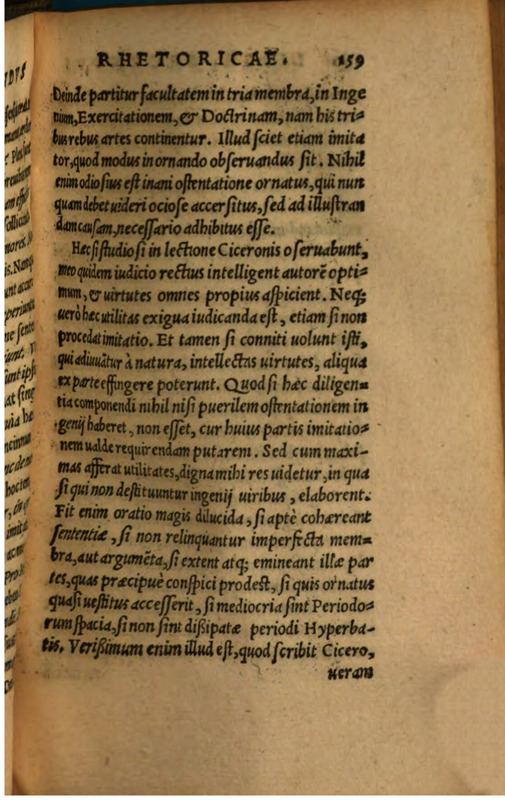 RHETORICAE. 159
Deinde partitur facultatem in tria membra, in Inge
nium, Exercitationem, & Doctrinam, nam his tri=
bus rebus artes continentur. Illud sciet etiam imita
tor, quod modus in ornando obseruandus sit. Nihil
enim odiosius est inani ostentatione ornatus, qui nun
quam debet uideri ociose accersitus, sed ad illustran
dam causam, necessario adhibitus esse.
Hæc si studiosi in lectione Ciceronis oseruabunt,
meo quidem iudicio rectius intelligent autorē opti=
mum, & uirtutes omnes propius aspicient. Neq;
uerò hæc utilitas exigua iudicanda est, etiam si non
procedat imitatio. Et tamen si conniti uolunt isti,
qui adiuuātur à natura, intellectas uirtutes, aliqua
ex parte effingere poterunt. Quod si hæc diligen=
tia componendi nihil nisi puerilem ostentationem in
genij haberet, non esset, cur huius partis imitatio=
nem ualde requirendam putarem. Sed cum maxi=
mas afferat utilitates, digna mihi res uidetur, in qua
si qui non destituuntur ingenij uiribus, elaborent.
Fit enim oratio magis dilucida, si aptè cohæreant
sententiæ, si non relinquantur imperfecta mem=
bra, aut argumēta, si extent atq; emineant illæ par
tes, quas præcipuè conspici prodest, si quis ornatus
quasi uestitus accesserit, si mediocria sint Periodo=
rum spacia, si non sint dißipatæ periodi Hyperba-
tis. Verißimum enim illud est, quod scribit Cicero,
ueram